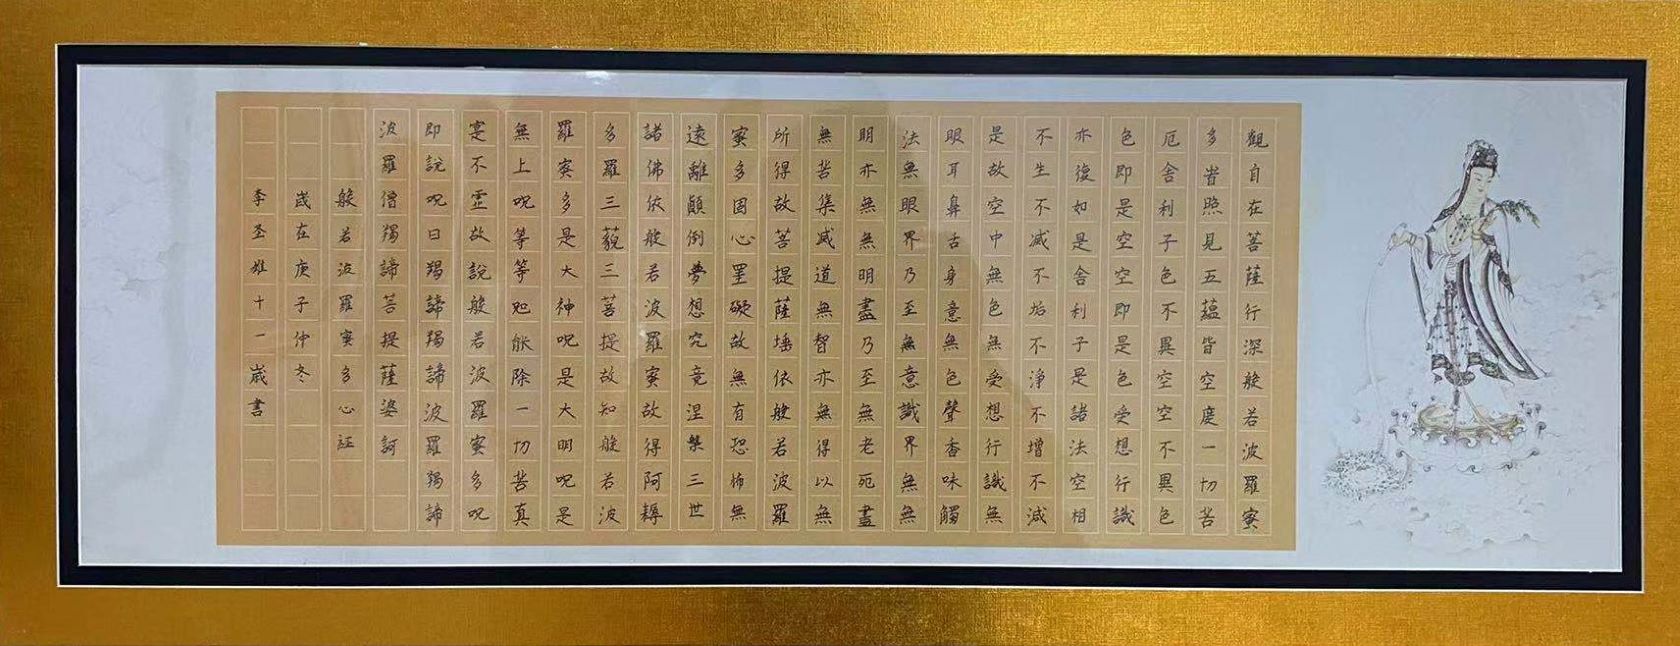 觀自在菩薩行深般若波羅蜜
多旹照見五蘊皆空度一切苦
厄舍利子色不異空空不異色
色即是空空即是色受想行識
亦復如是舍利子是諸法空相
不生不滅不垢不淨不增不減
是故空中無色無受想行識無
眼耳鼻舌身意無色聲香味觸
法無眼界乃至無意識界無無
明亦無無明盡乃至無老死盡
無苦集滅道無智亦無得以無
所得故菩提薩埵依般若波羅
蜜多固心罣礙故無有恐怖無
遠離顛倒夢想究竟涅槃三世
諸佛依般若波羅蜜故得阿耨
多羅三藐三菩提故知般若波
羅蜜多是大神呪是大明呪是
無上呪等等呪能除一切苦真
寔不虚故說般若波羅蜜多呪
即說呪曰羯諦羯諦波羅羯諦
波羅僧羯諦菩提薩婆訶
般若波羅蜜多心経
歲在庚子仲冬
李圣雄十一歲書